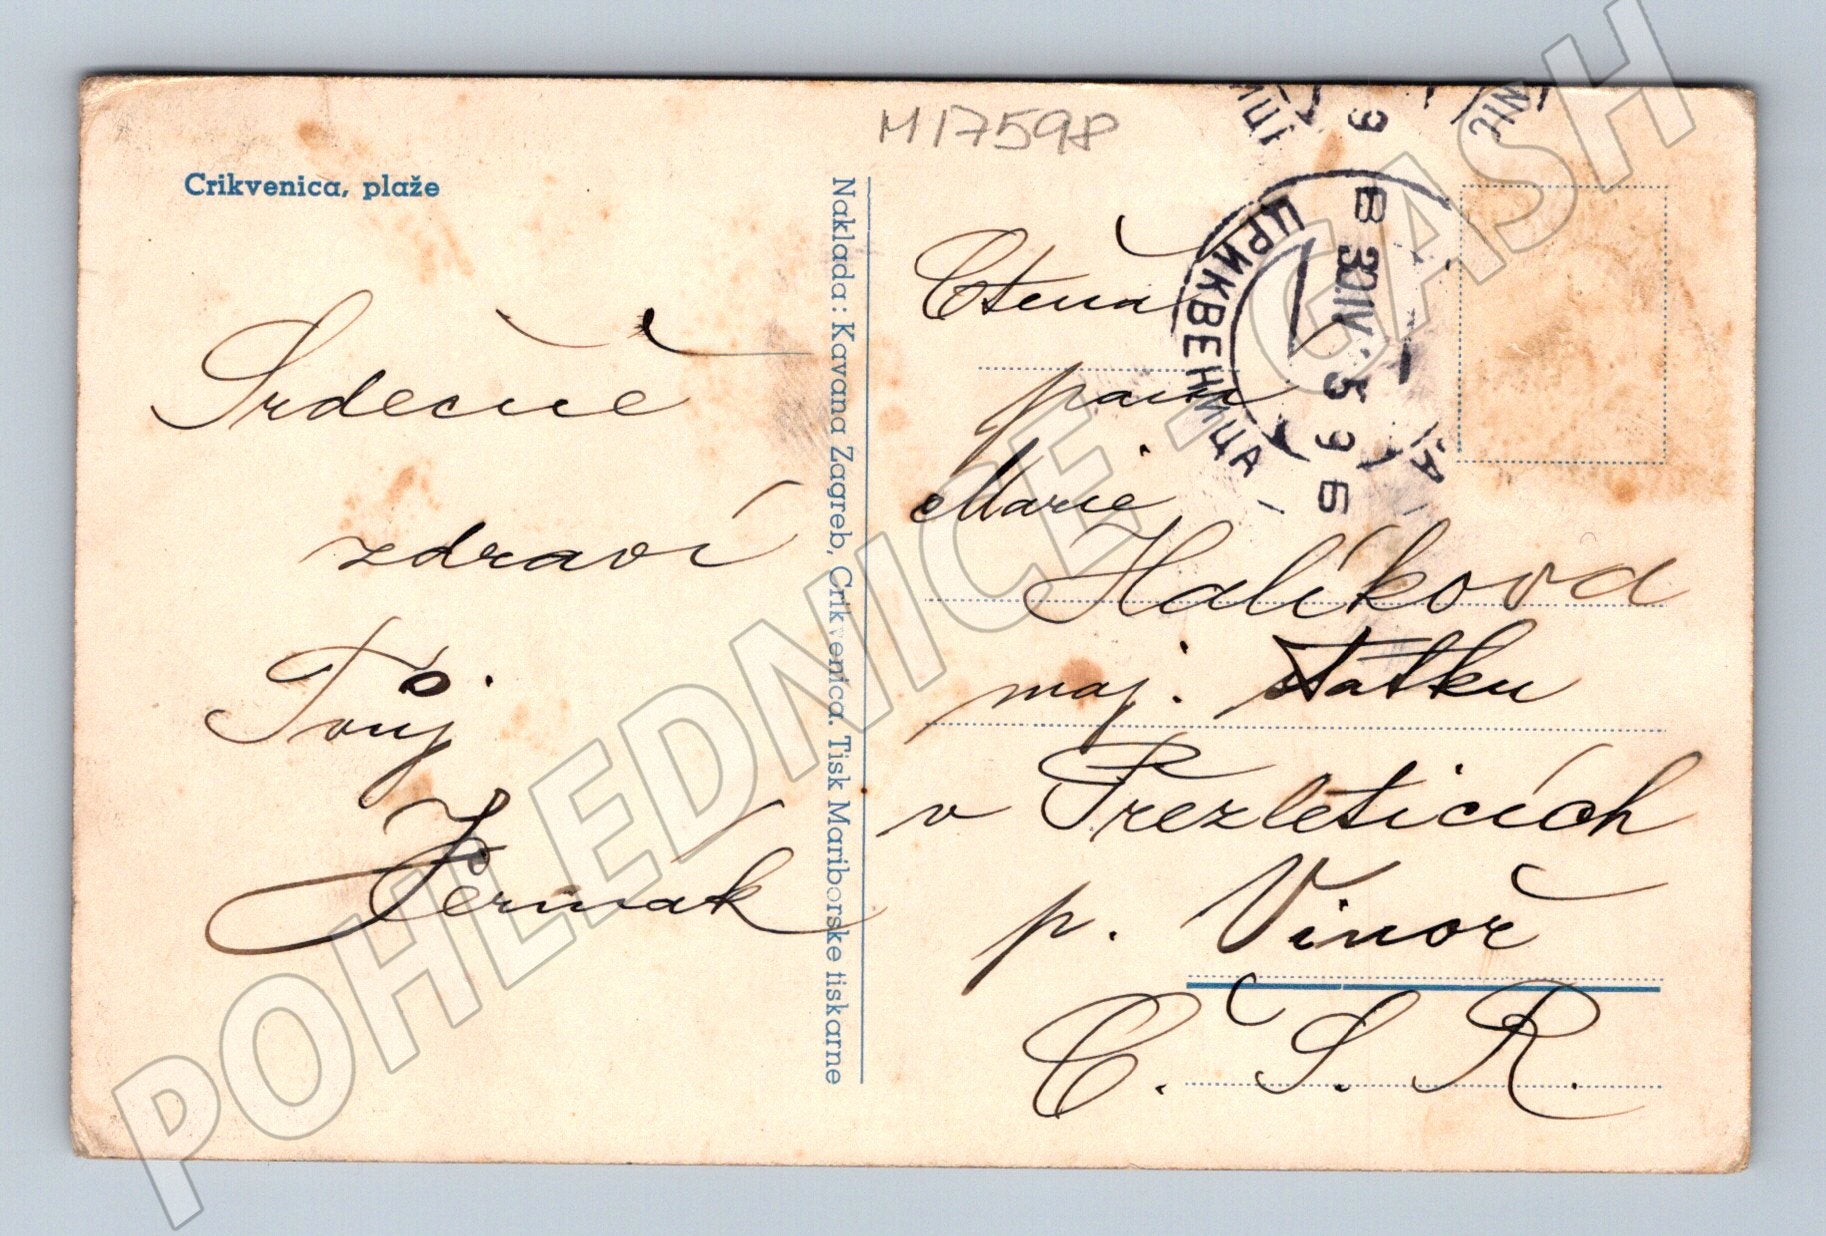 M17598
Crikvenica, plaže
Srdečně
zdraví
Tvůj
Čermák
Nakladа: Kavana Zagreb, Crikvenica. Tisk Mariborske tiskarne
Ctěná
paní
Marie
Halíková
maj. statku
v Přezleticích
p. Vinoř
Č. S. R.
ЦРИКВЕНИЦА
30 IV 5
POHLEDNICE - GASH